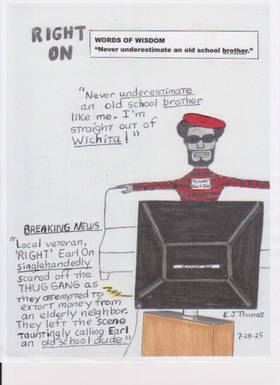 RIGHT
ON
WORDS OF WISDOM
"Never underestimate an old school brother."
"Never underestimate
an old school brother
like me. I'm
straight out of
Wichita!"
"RIGHT"
Earl On
BREAKING NEWS
"Local veteran,
'RIGHT' Earl On
singlehandedly
scared off the
THUG GANG as
they attempted to
extort money from
an elderly neighbor.
They left the scene
tauntingly calling Earl
an old school dude."
E.J. Thomas
7-29-25